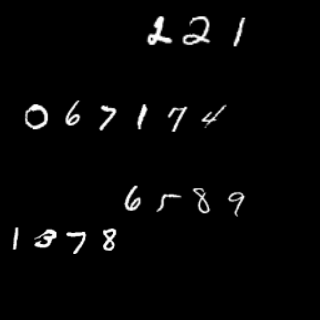 221
067174
6589
1378